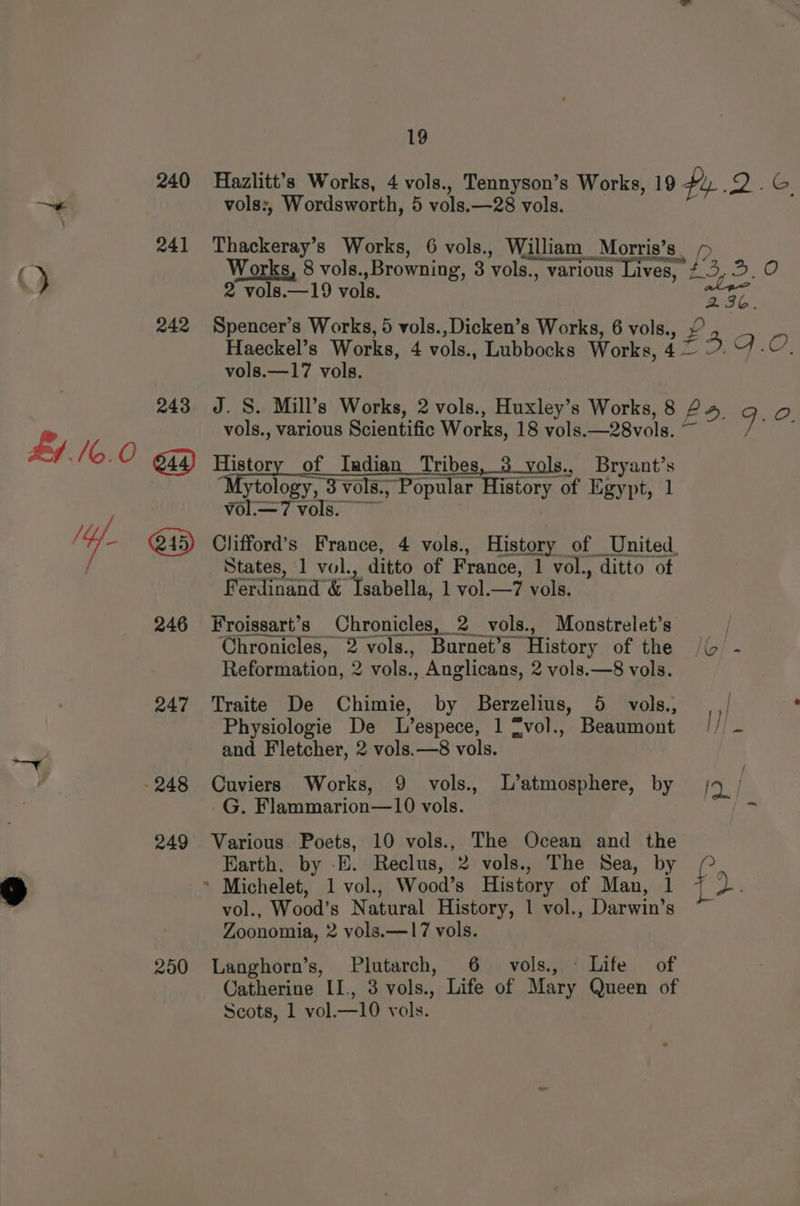 19
240 Hazlitt's Works, 4 vols., Tennyson's Works, 19 £4.2.6.
vols:, Wordsworth, 5 vols.—28 vols.
241 Thackeray's Works, 6 vols., William Morris's
Works, 8 vols.,Browning, 3 vols., various Lives, £3,3.0
2 vols.—19 vols.
236.
242 Spencer's Works, 5 vols.,Dicken's Works, 6 vols.,
Haeckel's Works, 4 vols., Lubbocks Works, 4 £3.9.0.
vols.—17 vols.
243 J. S. Mill's Works, 2 vols., Huxley's Works, 8 £3.9.0.
vols., various Scientific Works, 18 vols.—28vols.
£1.16.0 244 History of Indian Tribes, 3 vols., Bryant's
Mytology, 3 vols., Popular History of Egypt, 1
vol.—7 vols.
14/- 245 Clifford's France, 4 vols., History of United
States, 1 vol., ditto of France, 1 vol., ditto of
Ferdinand & Isabella, 1 vol.—7 vols.
246 Froissart's Chronicles, 2 vols., Monstrelet's
Chronicles, 2 vols., Burnet's History of the 16/-
Reformation, 2 vols., Anglicans, 2 vols.—8 vols.
247 Traite De Chimie, by Berzelius, 5 vols.,
Physiologie De L'espece, 1 vol., Beaumont 11/-
and Fletcher, 2 vols.—8 vols.
248 Cuviers Works, 9 vols., L'atmosphere, by 12/-
G. Flammarion—10 vols.
249 Various Poets, 10 vols., The Ocean and the
Earth, by E. Reclus, 2 vols., The Sea, by
Michelet, 1 vol., Wood's History of Man, 1 £2.
vol., Wood's Natural History, 1 vol., Darwin's
Zoonomia, 2 vols.—17 vols.
250 Langhorn's, Plutarch, 6 vols., Life of
Catherine II., 3 vols., Life of Mary Queen of
Scots, 1 vol.—10 vols.